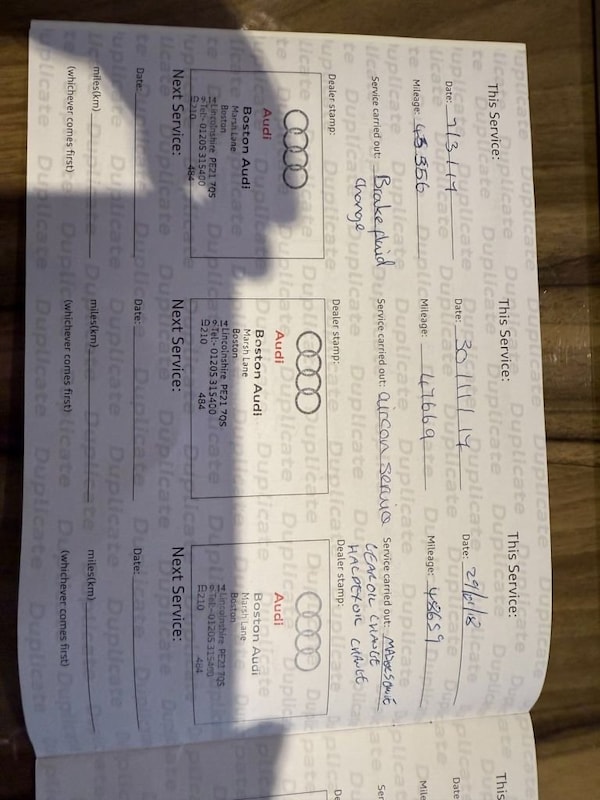 This Service:
Date: 7/3/17
Mileage: 45356
Service carried out: Brake fluid
Change
Dealer stamp:
Audi
Boston Audi
Marsh Lane
Boston
Lincolnshire PE21 7QS
Tel:- 01205 315400
210 484
Next Service:
Date:
miles(km)
(whichever comes first)
This Service:
Date: 30/11/17
Mileage: 47669
Service carried out: aircon service
Dealer stamp:
Audi
Boston Audi
Marsh Lane
Boston
Lincolnshire PE21 7QS
Tel:- 01205 315400
210 484
Next Service:
Date:
miles(km)
(whichever comes first)
This Service:
Date: 29/01/18
Mileage: 48659
Service carried out:
GEAR OIL CHANGE
HALDEX OIL CHANGE
Dealer stamp:
Audi
Boston Audi
Marsh Lane
Boston
Lincolnshire PE21 7QS
Tel:- 01205 315400
210 484
Next Service:
Date:
miles(km)
(whichever comes first)
This
Date
Mile
Ser
De
Duplicate